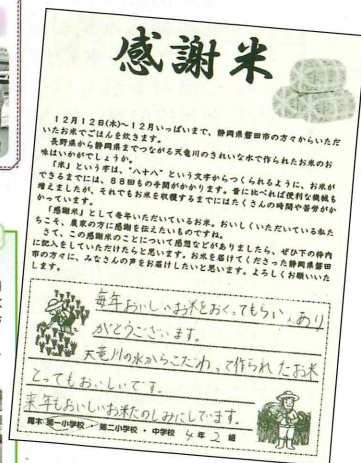 感謝米
12月12日(木)～12月いっぱいまで、静岡県磐田市の方々からいただ
いたお米でごはんを炊きます。
長野県から静岡県までつながる天竜川のきれいな水で作られたお米のお
味はいかがでしょうか。
「米」という字は、“八十八”という文字からつくられるように、お米が
できるまでには、88回もの手間がかかります。昔に比べれば便利な機械も
増えましたが、それでもお米を収穫するまでにはたくさんの時間や苦労がか
かっています。
「感謝米」として毎年いただいているお米。おいしくいただいている私た
ちこそ、農家の方に感謝を伝えたいものですね。
さて、この感謝米のことについて感想などがありましたら、ぜひ下の枠内
に記入をしていただけたらと思います。お米を届けてくださった静岡県磐田
市の方々に、みなさんの声をお届けしたいと思います。よろしくお願いいた
します。
毎年おいしいお米をおくってもらい、あり
がとうございます。
天竜川の水からこだわって作られたお米
とってもおいしいです。
来年もおいしいお米たのしみにしています。
第一小学校・第二小学校・中学校 4年2組